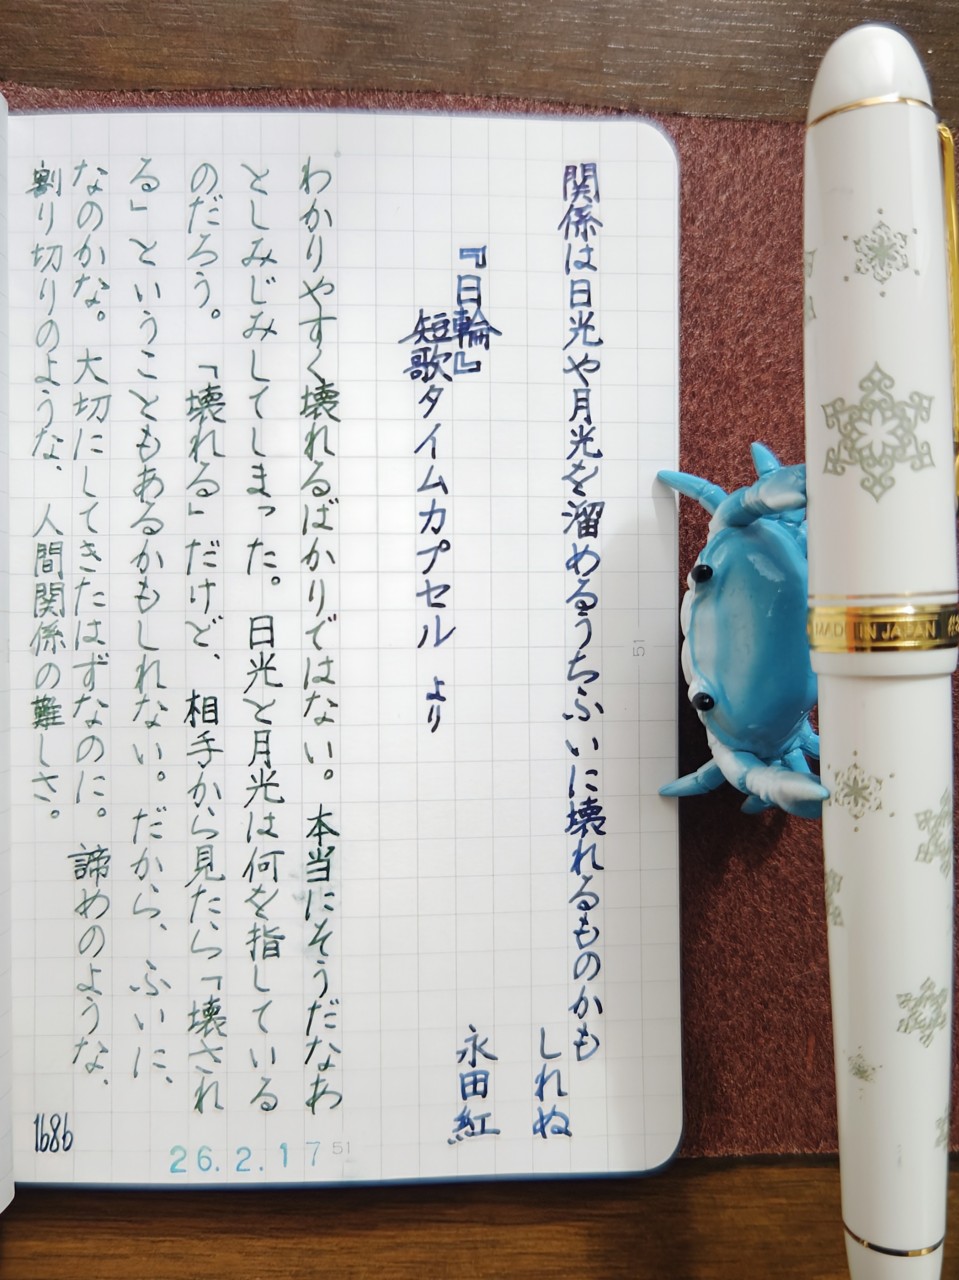 関係は日光や月光を溜めるうちふいに壊れるものかも
しれぬ
『日輪』
短歌タイムカプセル より
永田紅
わかりやすく壊れるばかりではない。本当にそうだなぁ
としみじみしてしまった。日光と月光は何を指している
のだろう。「壊れる」だけど、相手から見たら「壊され
る」ということもあるかもしれない。だから、ふいに、
なのかな。大切にしてきたはずなのに。諦めのような、
割り切りのような、人間関係の難しさ。
1686
26.2.17
51
51
MADE IN JAPAN